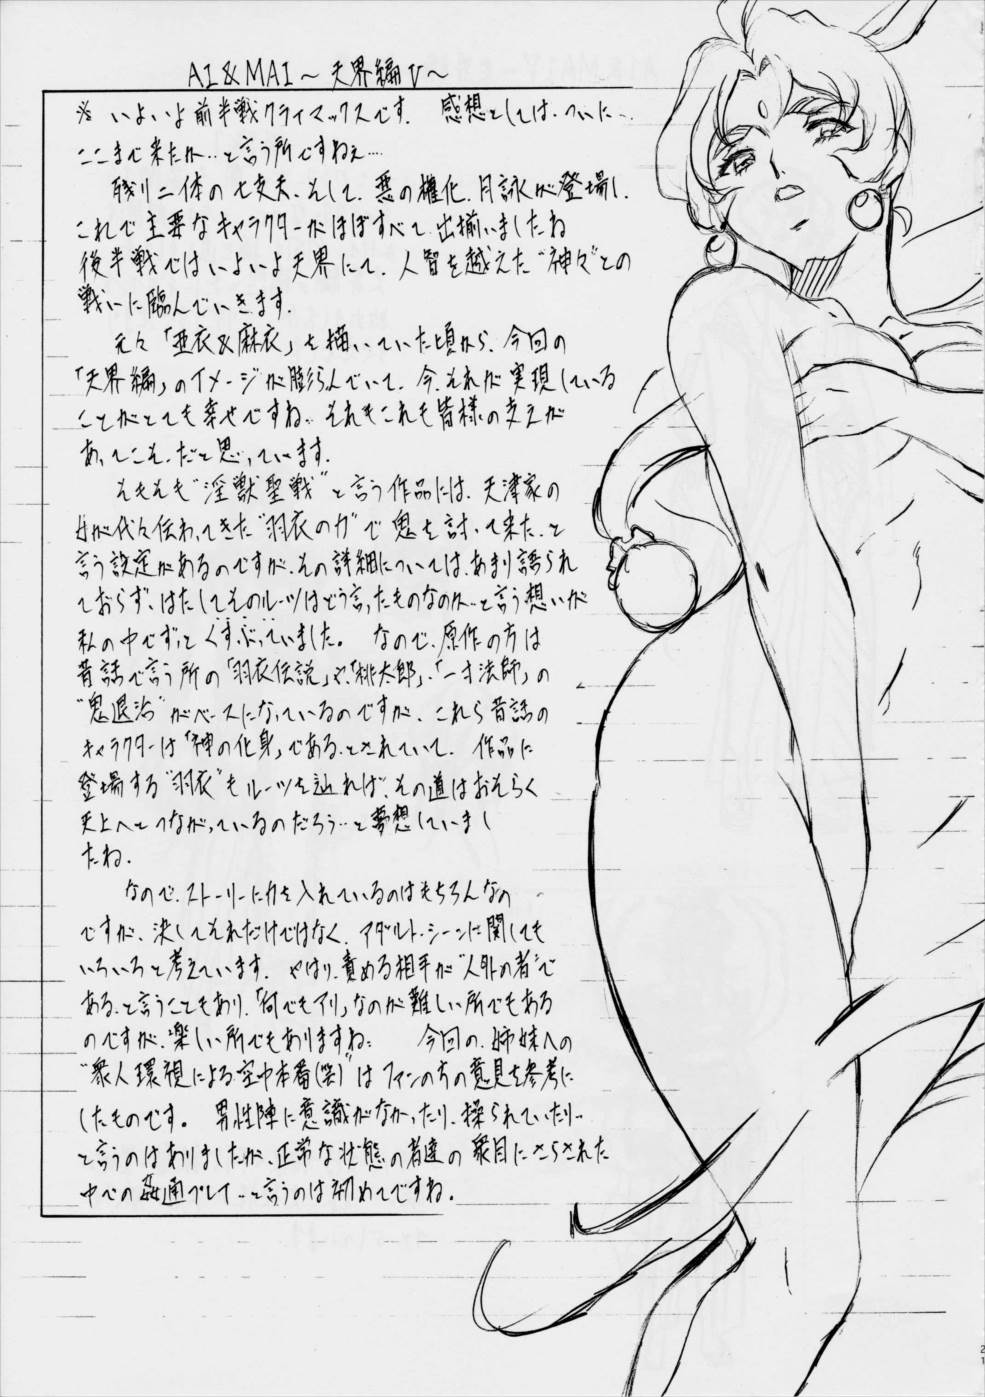 AI & MAI ～ 天界編 V ～
※ いよいよ前半戦クライマックスです. 感想としては、ついに…
ここまで来たか…と言う所ですねぇ…
残り二体の七支天、そして、悪の権化、月詠が登場し、
これで主要なキャラクターがほぼすべて出揃いましたね
後半戦ではいよいよ天界にて、人智を越えた"神々"との
戦いに臨んでいきます.
元々「亜衣&麻衣」を描いていた頃から、今回の
「天界編」のイメージが膨らんでいて、今、それが実現している
ことがとても幸せですね… それもこれも皆様の支えが
あってこそ、だと思っています.
そもそも"淫獣聖戦"と言う作品には、天津家の
女が代々伝わってきた"羽衣の力"で鬼を討って来た、と
言う設定があるのですが、その詳細については、あまり語られ
ておらず、はたしてそのルーツはどう言ったものなのか…と言う想いが
私の中でずっとくすぶっていました。 なので、原作の方は
昔話で言う所の「羽衣伝説」や、「桃太郎」、「一寸法師」の
"鬼退治"がベースになっているのですが、これら昔話の
キャラクターは「神の化身」である、とされていて、作品に
登場する"羽衣"もルーツを辿れば、その道はおそらく
天上へとつながっているのだろう…と夢想していまし
たね.
なので、ストーリーに力を入れているのはもちろんなの
ですが、決してそれだけではなく、アダルト・シーンに関しても
いろいろと考えています. やはり、責める相手が"人外の者"で
ある、と言うこともあり、「何でもアリ」なのが難しい所でもある
のですが、楽しい所でもありますね… 今回の、姉妹への
"衆人環視による空中本番(笑)"はファンの方の意見を参考に
したものです。 男性陣に意識がなかったり、操られていたり…
と言うのはありましたが、正常な状態の者達の衆目にさらされた
中での姦通プレイ…と言うのは初めてですね.
21